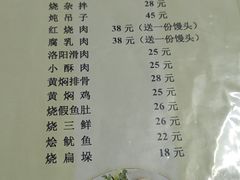 烧杂拌 28元
炖吊子 45元
红烧肉 38元（送一份馒头）
腐乳肉 38元（送一份馒头）
洛阳滑肉 25元
小酥肉 25元
黄焖排骨 28元
黄焖鸡 25元
烧假鱼肚 26元
烧三鲜 26元
烩鱿鱼 22元
烧扁垛 18元